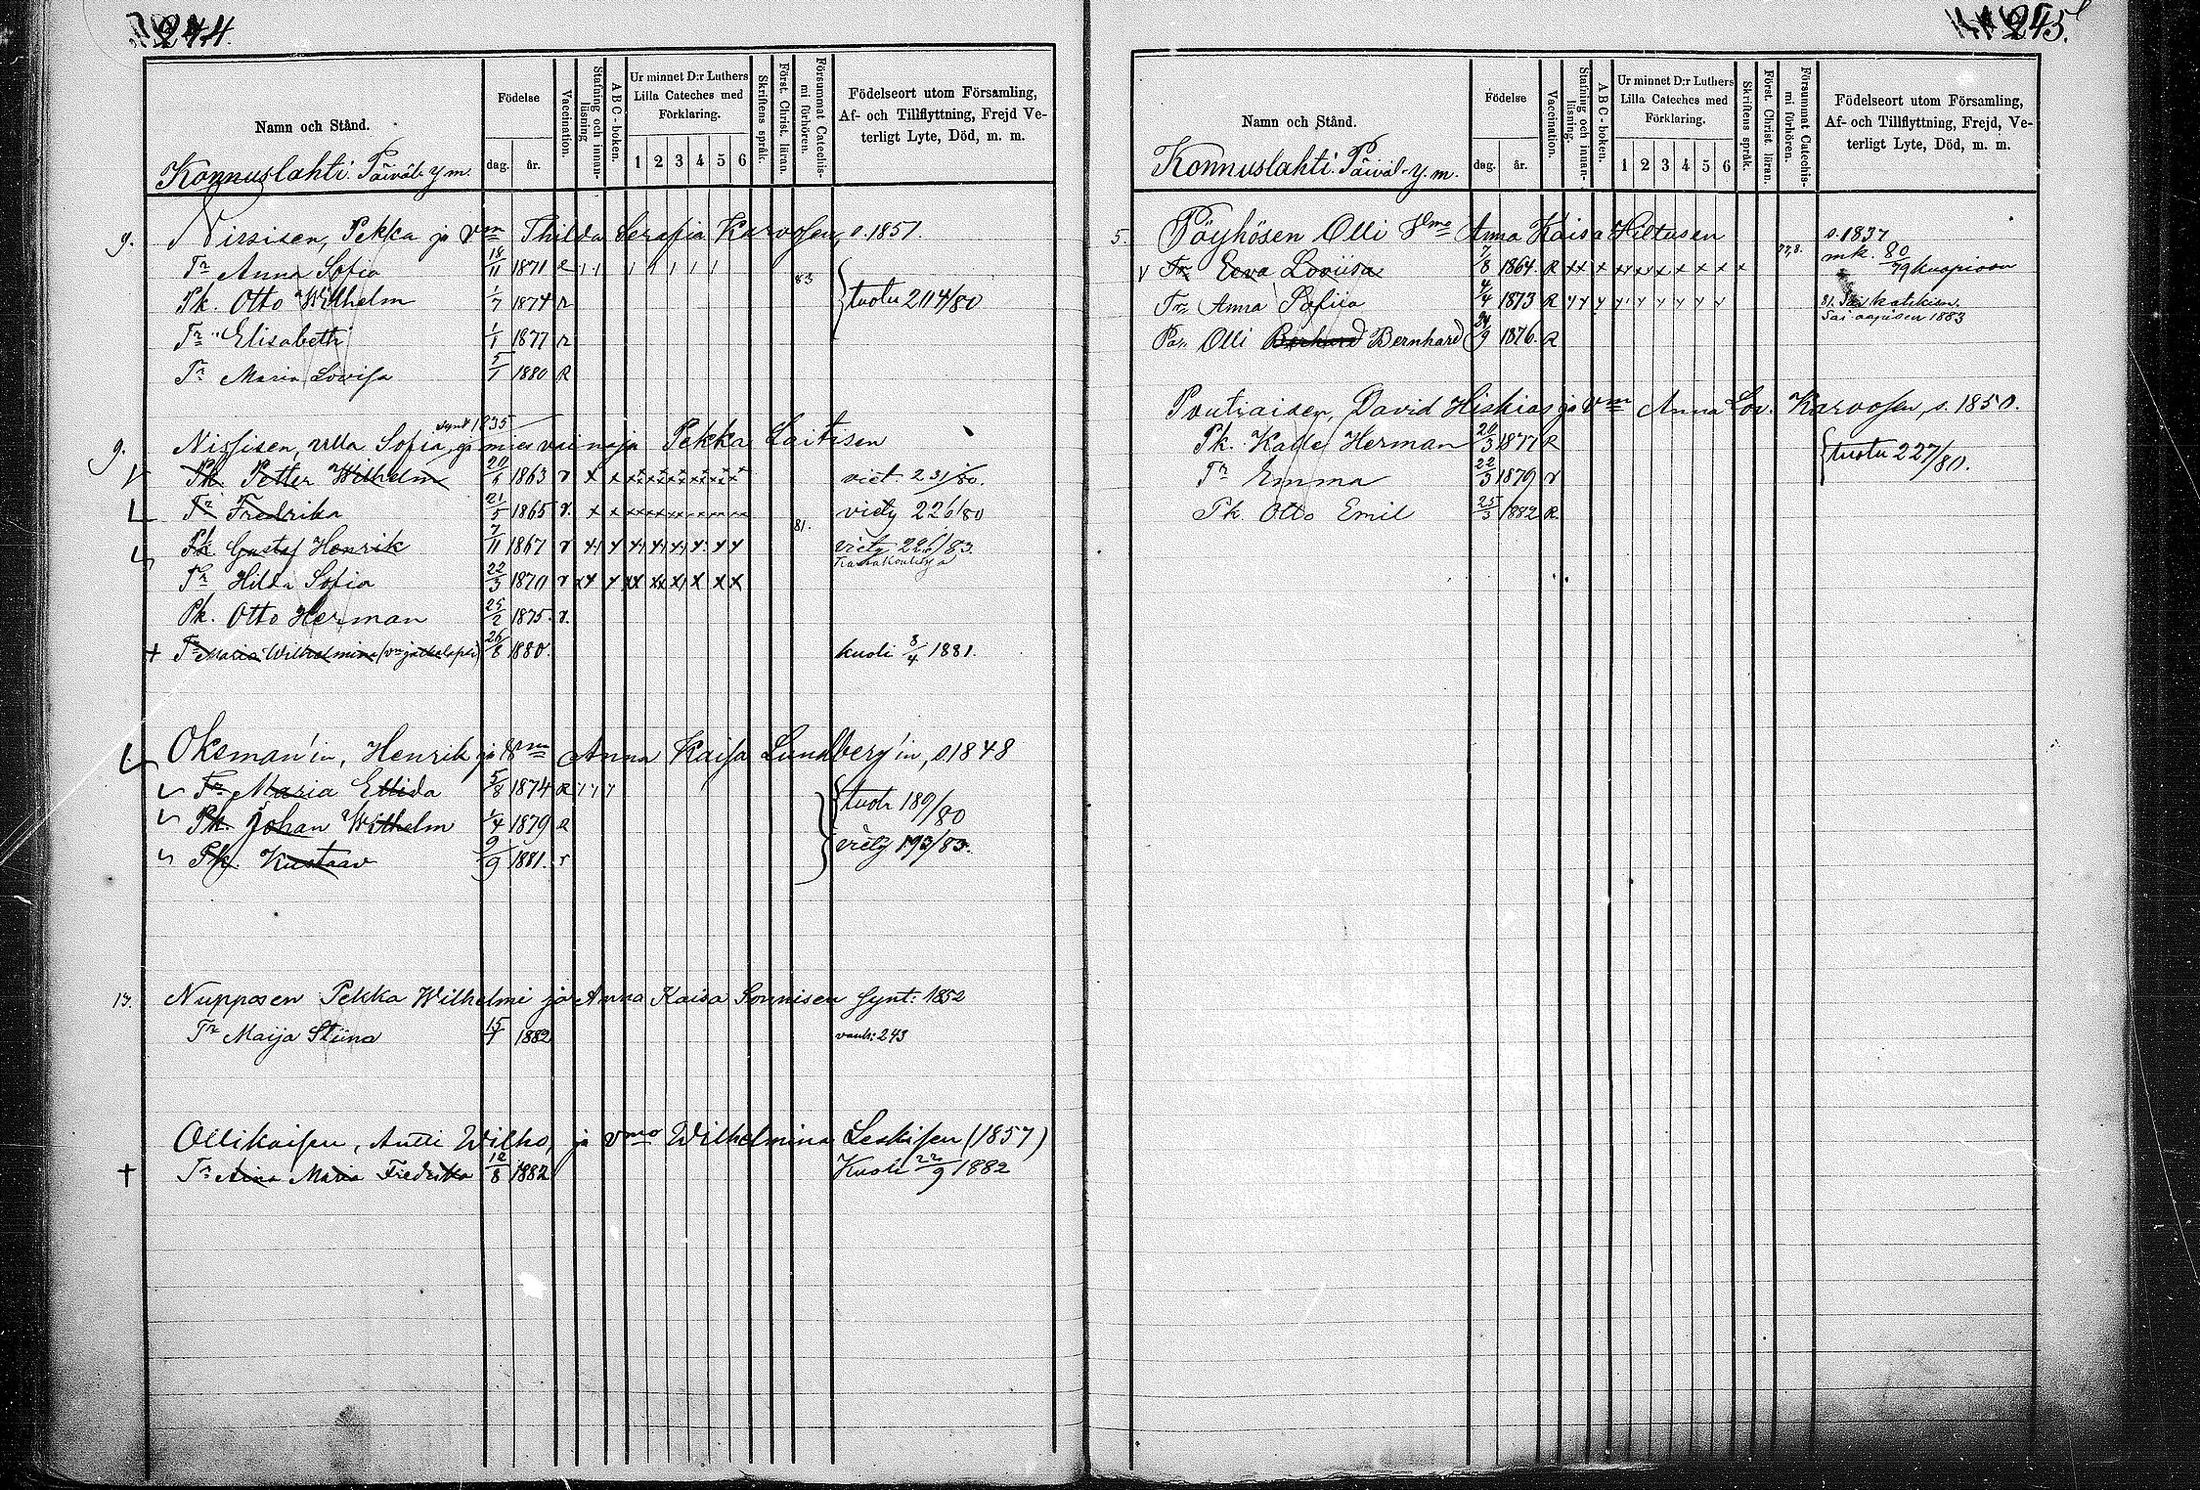 244.
Namn och Stånd.
Födelse
dag. år.
Vaccination.
Stafning och innan-läsning
ABC-boken.
Ur minnet D:r Luthers Lilla Cateches med Förklaring.
1 2 3 4 5 6
Skriftens språk.
Först. Christ. läran.
Försummat Catechis-mi förhören.
Födelseort utom Församling, Af- och Tillflyttning, Frejd Ve-terligt Lyte, Död, m. m.
Konnuslahti. Päiväl. y m.
9. Nissisen, Pekka ja Vm Thilda Serafia Karvosen, s. 1851
Tr Anna Sofia 18/11 1871 R 83
Pk. Otto Wilhelm 1/7 1874 r tuotu 204/80
Tr Elisabeth 1/1 1877 r
Tr Maria Lovisa 5/1 1880 R
synt 1835
9. Nissisen, Ulla Sofia, ja mies vainaja Pekka Laitisen
V Pk. Petter Wilhelm 20/5 1863 r x x viet. 231/80.
Tr Fredrika 21/5 1865 r. x x viety 226/80
Pk Gustaf Henrik 7/11 1867 r 81. viety 226/83.
Tr Hilda Sofia 22/3 1870 r
Pk. Otto Herman 25/2 1875. r.
+ Tr Maria Wilhelmina 26/8 1880. kuoli 8/4 1881.
Oksman'in, Henrik ja Vm Anna Kaisa Lundberg'in, s. 1848
Tr Maria Ellida 5/8 1874 R
Pk. Johan Wilhelm 1/4 1879 R tuotu 189/80
Pk. Kustaav 9/9 1881. r viety 193/83.
13. Nupposen Pekka Wilhelmi ja Anna Kaisa Sonnisen synt: 1852
Tr Maija Stiina 15/1 1882 vanh: 243
Ollikaisen, Antti Wilho, ja vmo Wilhelmina Leskisen (1857)
+ Tr Aina Maria Fredrika 12/8 1882 Kuoli 22/9 1882
245.
Namn och Stånd.
Födelse
dag. år.
Vaccination.
Stafning och innan-läsning.
ABC-boken.
Ur minnet D:r Luthers Lilla Cateches med Förklaring.
1 2 3 4 5 6
Skriftens språk.
Först. Christ. läran.
Försummat Catechis-mi förhören.
Födelseort utom Församling, Af- och Tillflyttning, Frejd, Ve-terligt Lyte, Död, m. m.
Konnuslahti. Päiväl. y. m.
5. Pöyhösen Olli Vmo Anna Kaisa Hiltusen s. 1837
V Tr Eeva Loviisa 7/8 1864. R 77,8. mk. 80/79 Kuopioon
Tr Anna Sofiia 4/4 1873 R 81. Sai katekism.
Sai aapisen 1883
Poi. Olli Berhard Bernhard 24/9 1876. R
Poutiaisen, David Hiskias ja Vm Anna Lov. Karvosen, s. 1850.
Pk. Kalle Herman 20/3 1877 R
Tr Emma 22/3 1879 r tuotu 227/80.
Pk Otto Emil 25/3 1882 R